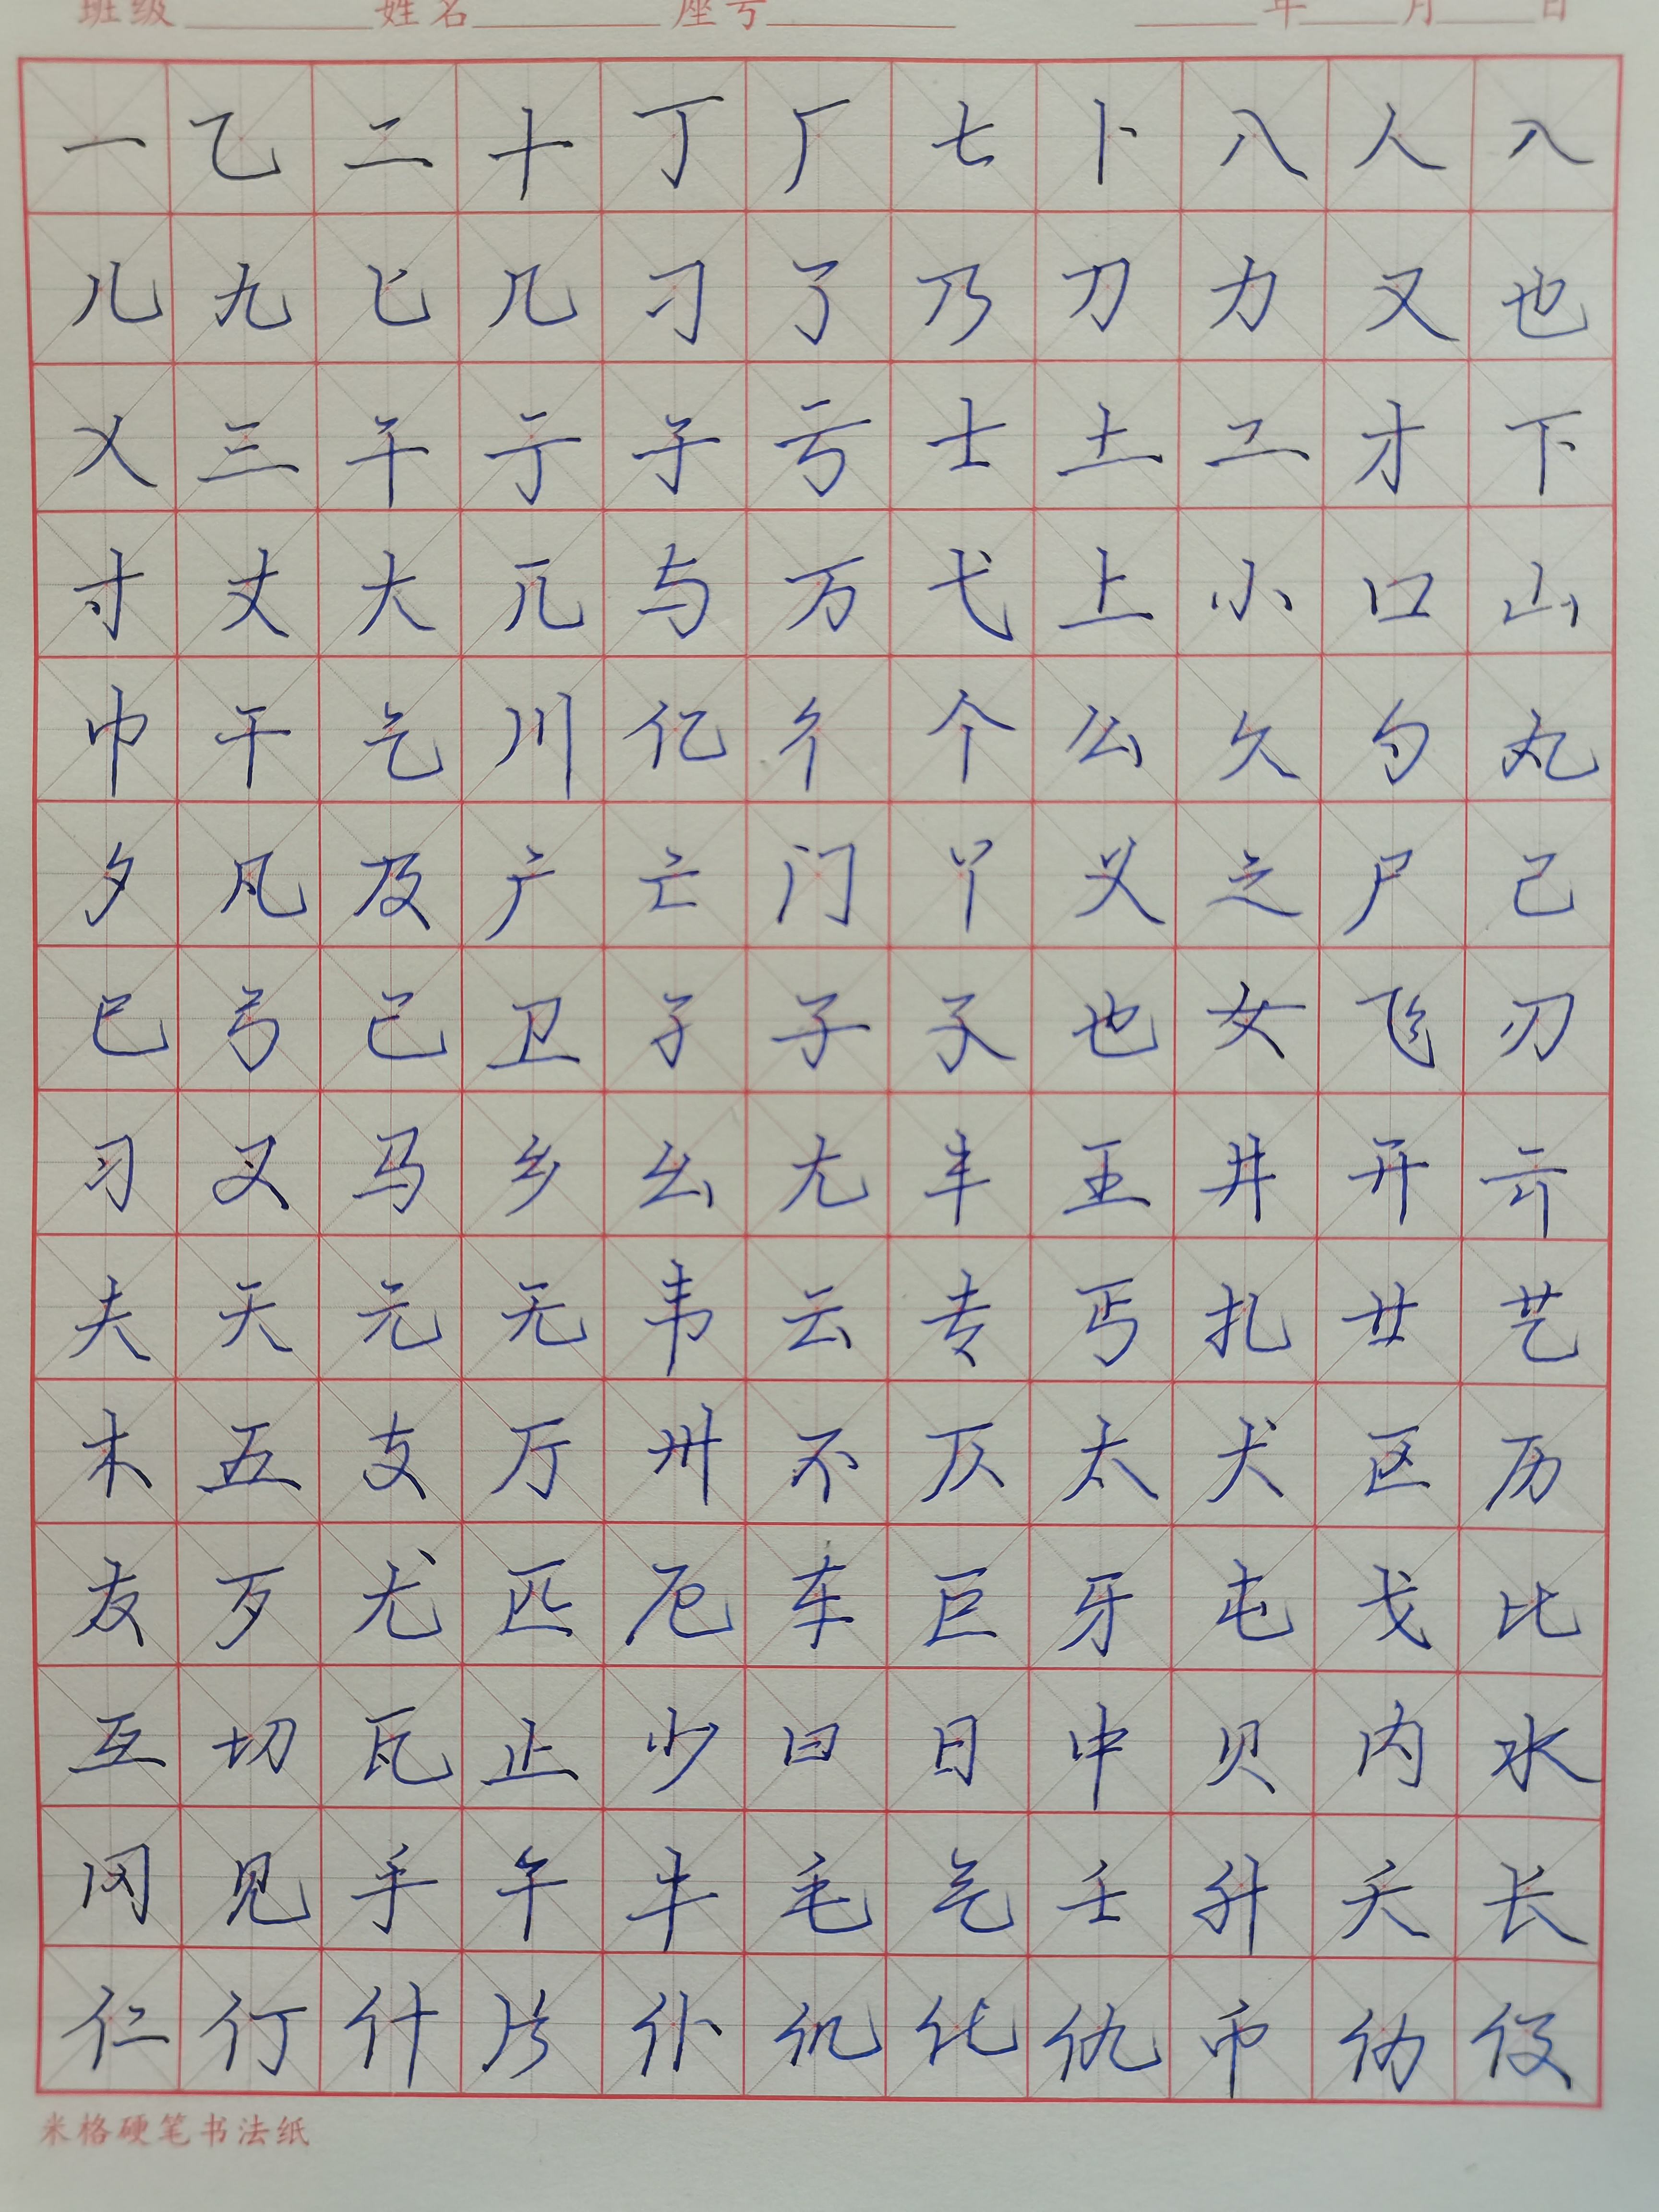 班级 姓名 座号 年 月 日
一乙二十丁厂七卜八人入
儿九匕几刁了乃刀力又也
乂三干亍于亏士土工才下
寸丈大兀与万弋上小口山
巾干乞川亿彳个么久勺丸
夕凡及产亡门丫义之尸己
巳弓己卫孑子孓也女飞刃
习叉马乡幺尢丰王井开亓
夫天元无韦云专丐扎廿艺
木五支厅卅不仄太犬区历
友歹尤匹厄车巨牙屯戈比
互切瓦止少曰日中贝内水
冈见手午牛毛气壬升夭长
仁仃什片仆仉化仇币仂仅
米格硬笔书法纸